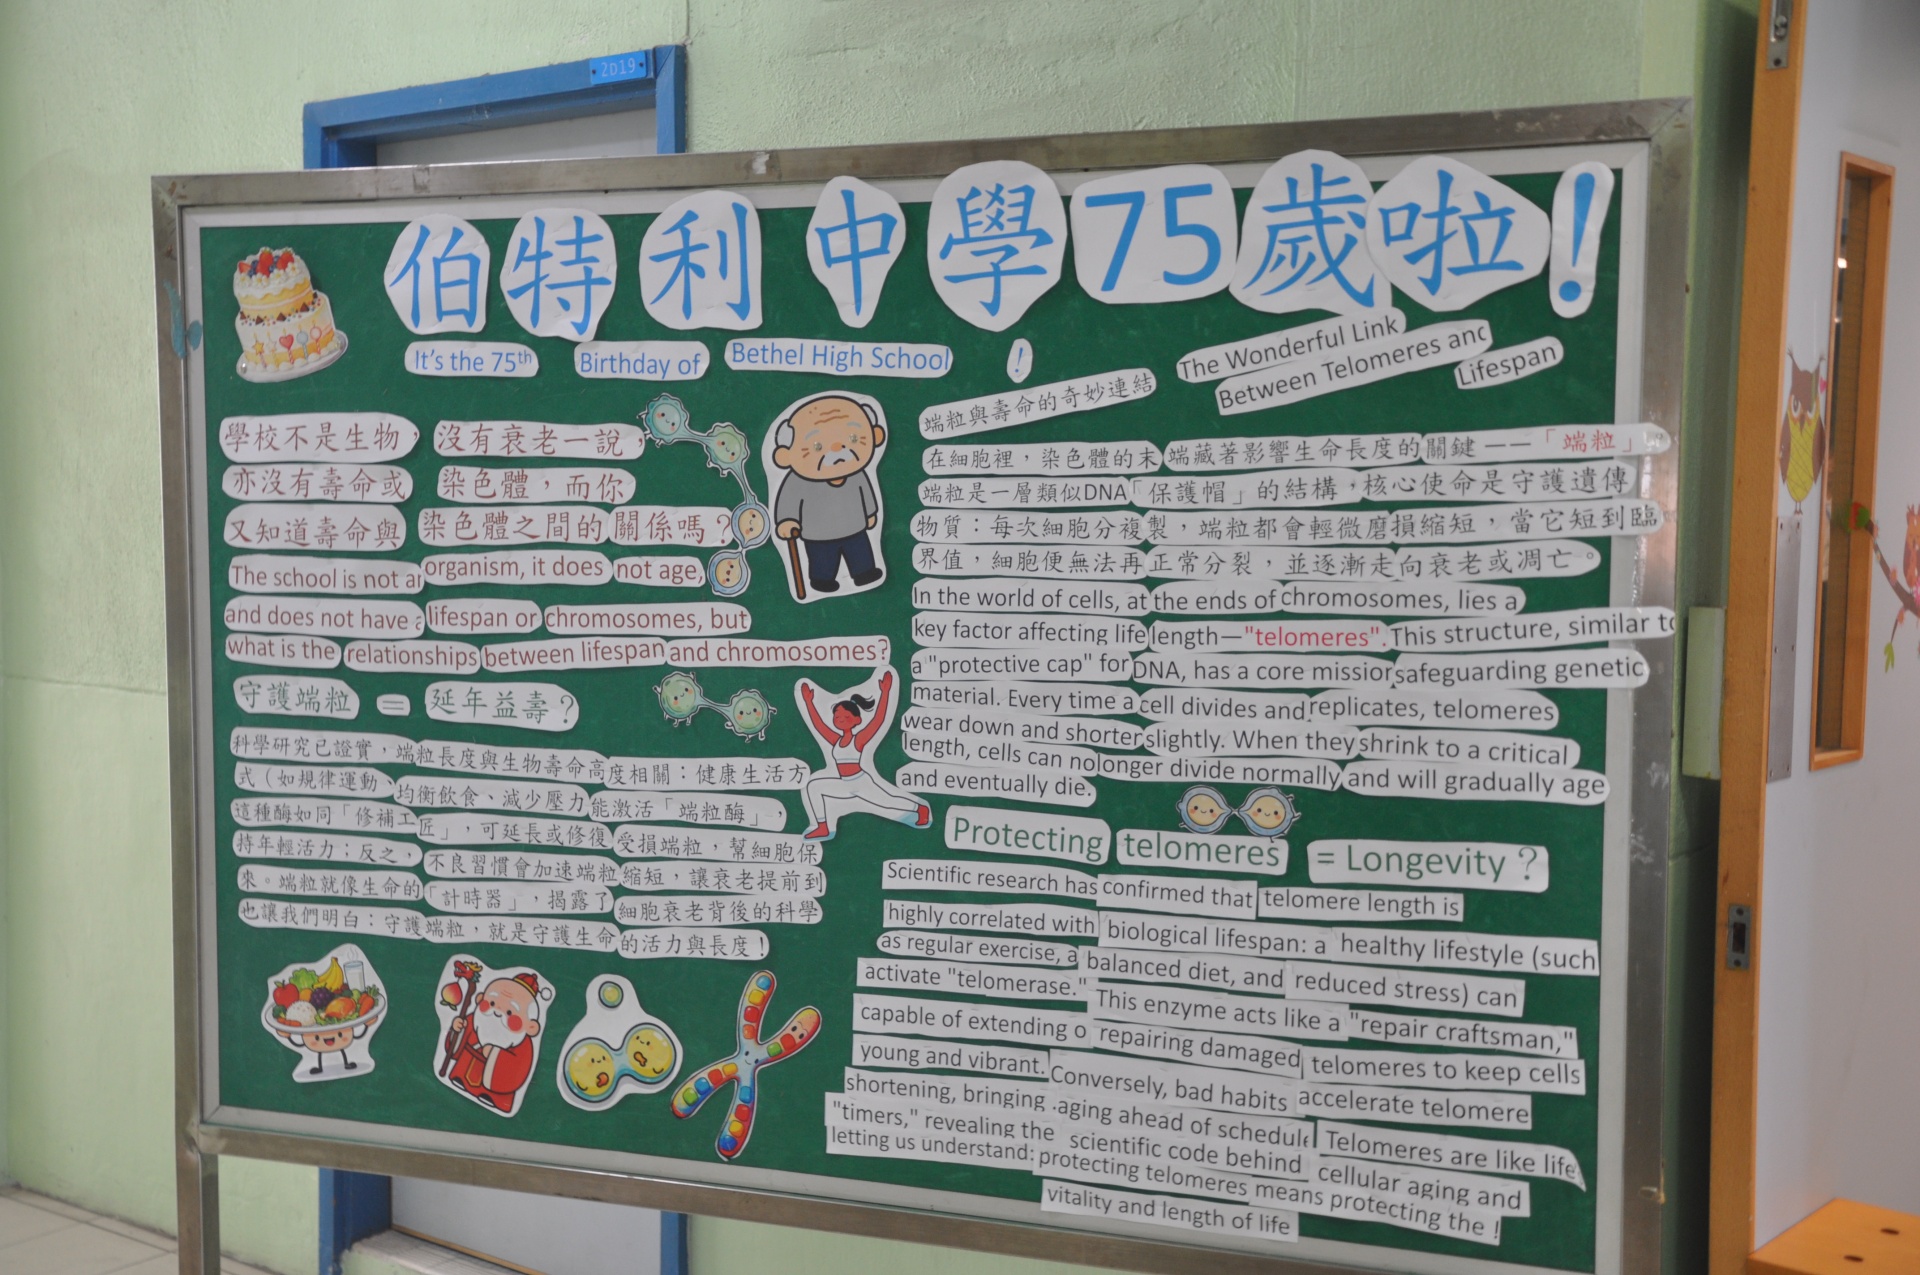 2D19
伯特利中學75歲啦!
It's the 75th Birthday of Bethel High School !
學校不是生物，沒有衰老一說，
亦沒有壽命或染色體，而你
又知道壽命與染色體之間的關係嗎？
The school is not an organism, it does not age,
and does not have a lifespan or chromosomes, but
what is the relationships between lifespan and chromosomes?
守護端粒 = 延年益壽？
科學研究已證實，端粒長度與生物壽命高度相關：健康生活方
式（如規律運動、均衡飲食、減少壓力能激活「端粒酶」，
這種酶如同「修補工匠」，可延長或修復受損端粒，幫細胞保
持年輕活力；反之，不良習慣會加速端粒縮短，讓衰老提前到
來。端粒就像生命的「計時器」，揭露了細胞衰老背後的科學
也讓我們明白：守護端粒，就是守護生命的活力與長度！
The Wonderful Link
Between Telomeres and
Lifespan
端粒與壽命的奇妙連結
在細胞裡，染色體的末端藏著影響生命長度的關鍵——「端粒」。
端粒是一層類似DNA「保護帽」的結構，核心使命是守護遺傳
物質：每次細胞分複製，端粒都會輕微磨損縮短，當它短到臨
界值，細胞便無法再正常分裂，並逐漸走向衰老或凋亡。
In the world of cells, at the ends of chromosomes, lies a
key factor affecting life length—"telomeres". This structure, similar to
a "protective cap" for DNA, has a core mission safeguarding genetic
material. Every time a cell divides and replicates, telomeres
wear down and shorter slightly. When they shrink to a critical
length, cells can no longer divide normally and will gradually age
and eventually die.
Protecting telomeres = Longevity ?
Scientific research has confirmed that telomere length is
highly correlated with biological lifespan: a healthy lifestyle (such
as regular exercise, a balanced diet, and reduced stress) can
activate "telomerase." This enzyme acts like a "repair craftsman,"
capable of extending o repairing damaged telomeres to keep cells
young and vibrant. Conversely, bad habits accelerate telomere
shortening, bringing aging ahead of schedule Telomeres are like life
"timers," revealing the scientific code behind cellular aging and
letting us understand: protecting telomeres means protecting the !
vitality and length of life